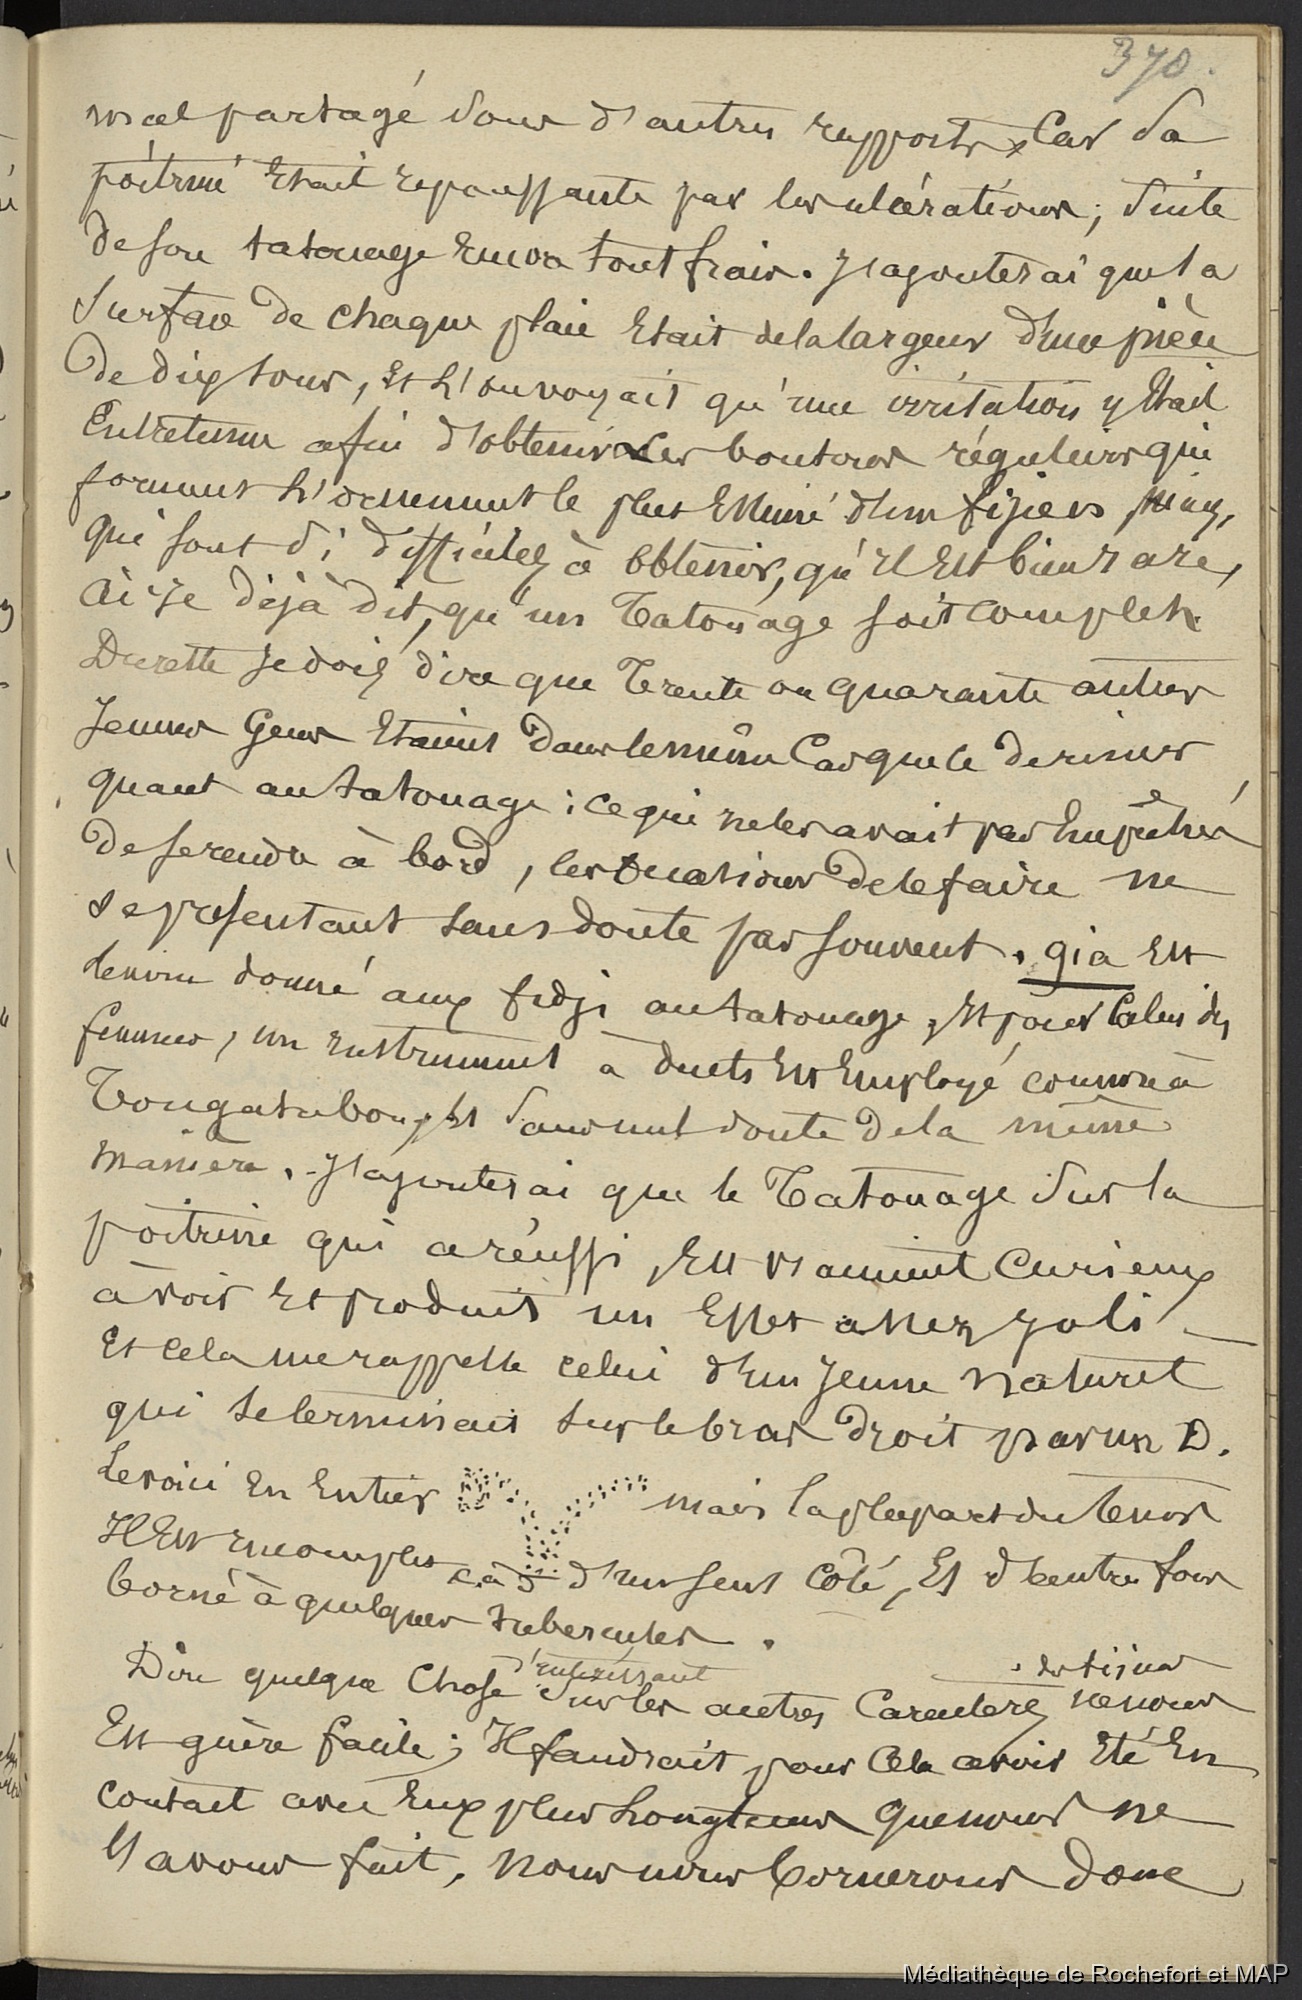 370.
mal partagé sous d'autres rapports, Car sa
poitrine Etait repoussante par les ulcérations, suite
de son tatouage Encore tout frais. J'ajouterai que la
surface de chaque plaie Etait de la largeur d'une pièce
de dix sous, Et l'on voyait qu'une irritation y Etait
Entretenue afin d'obtenir les boutons réguliers qui
forment l'ornement le plus Estimé d'un fijien,
qui sont si difficiles à obtenir, qu'il Est bien rare,
ai-je déjà dit, qu'un Tatouage soit complet.
Du reste je dois dire que Trente ou quarante autres
Jeunes Gens Etaient dans le même Cas que le dernier
quant au tatouage : ce qui ne les avait pas Empêchés
de se rendre à bord, les occasions de le faire ne
se présentant sans doute pas souvent. gia Est
le nom donné aux fidji au tatouage, Et pour Celui des
femmes, un instrument à dents Est Employé comme à
Tongatabou, Et sans nul doute de la même
manière. J'ajouterai que le Tatouage sur la
poitrine qui a réussi, Est vraiment Curieux
à voir Et produit un Effet assez joli _
Et cela me rappelle celui d'un jeune naturel
qui se terminait sur le bras droit par un D.
Le voici En Entier mais la plupart du temps
Il Est incomplet c.à.d d'un seul côté, Et d'autres fois
borné à quelques tubercules.
Dire quelque Chose d'intéressant sur les autres Caractères des fijiens ne nous
Est guère facile ; Il faudrait pour Cela avoir Eté En
contact avec Eux plus longtems que nous ne
l'avons fait. Nous nous bornerons donc
Médiathèque de Rochefort et MAP